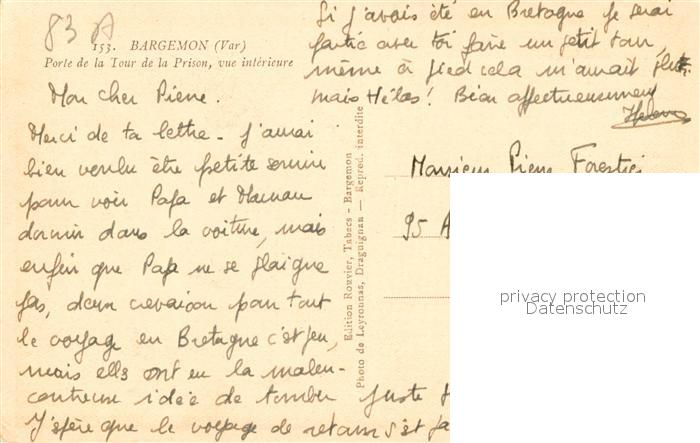 83 A
153. BARGEMON (Var)
Porte de la Tour de la Prison, vue intérieure
Mon cher Pierre.
Merci de ta lettre. J'aurai
bien voulu être petite souris
pour voir Papa et Maman
dormir dans la voiture, mais
enfin que Papa ne se plaigne
pas, deux crevaison pour tout
le voyage en Bretagne c'est peu,
mais elles ont eu la malen-
contreuse idée de tomber juste
J'espère que le voyage de retour s'est
Si j'avais été en Bretagne je serai
partie avec toi faire un petit tour,
même à pied cela m'aurait plu,
mais Hélas! Bien affectueusement
Edition Rouvier, Tabacs - Bargemon
Photo de Leyronnas, Draguignan — Reprod. interdite
Monsieur Pierre Forestier
95 A
privacy protection
Datenschutz